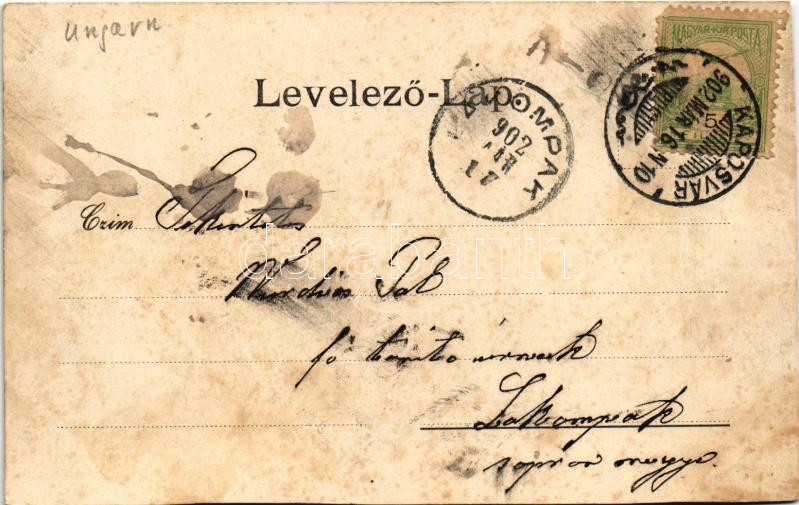 Ungarn
Levelező-Lap.
MAGYAR KIR. POSTA
5
KAPOSVÁR
902 MÁR 16 N10
LAKOMPAK
902
MÁR
17
Czim Tekintetes
Pál
fő tanitó urnak
Lakompak
sopron megye.
darabanth